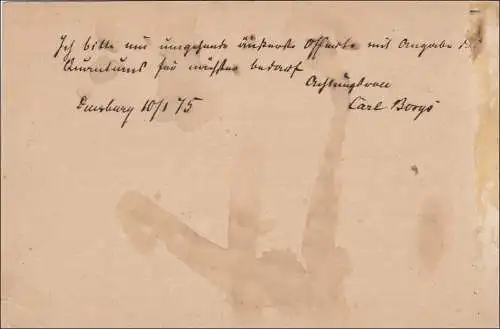 Ich bitte um umgehende äußerste Offerte mit Angabe des
Quantums für nächsten bedarf
Achtungsvoll
Duisburg 10/1 75 Carl Borgs